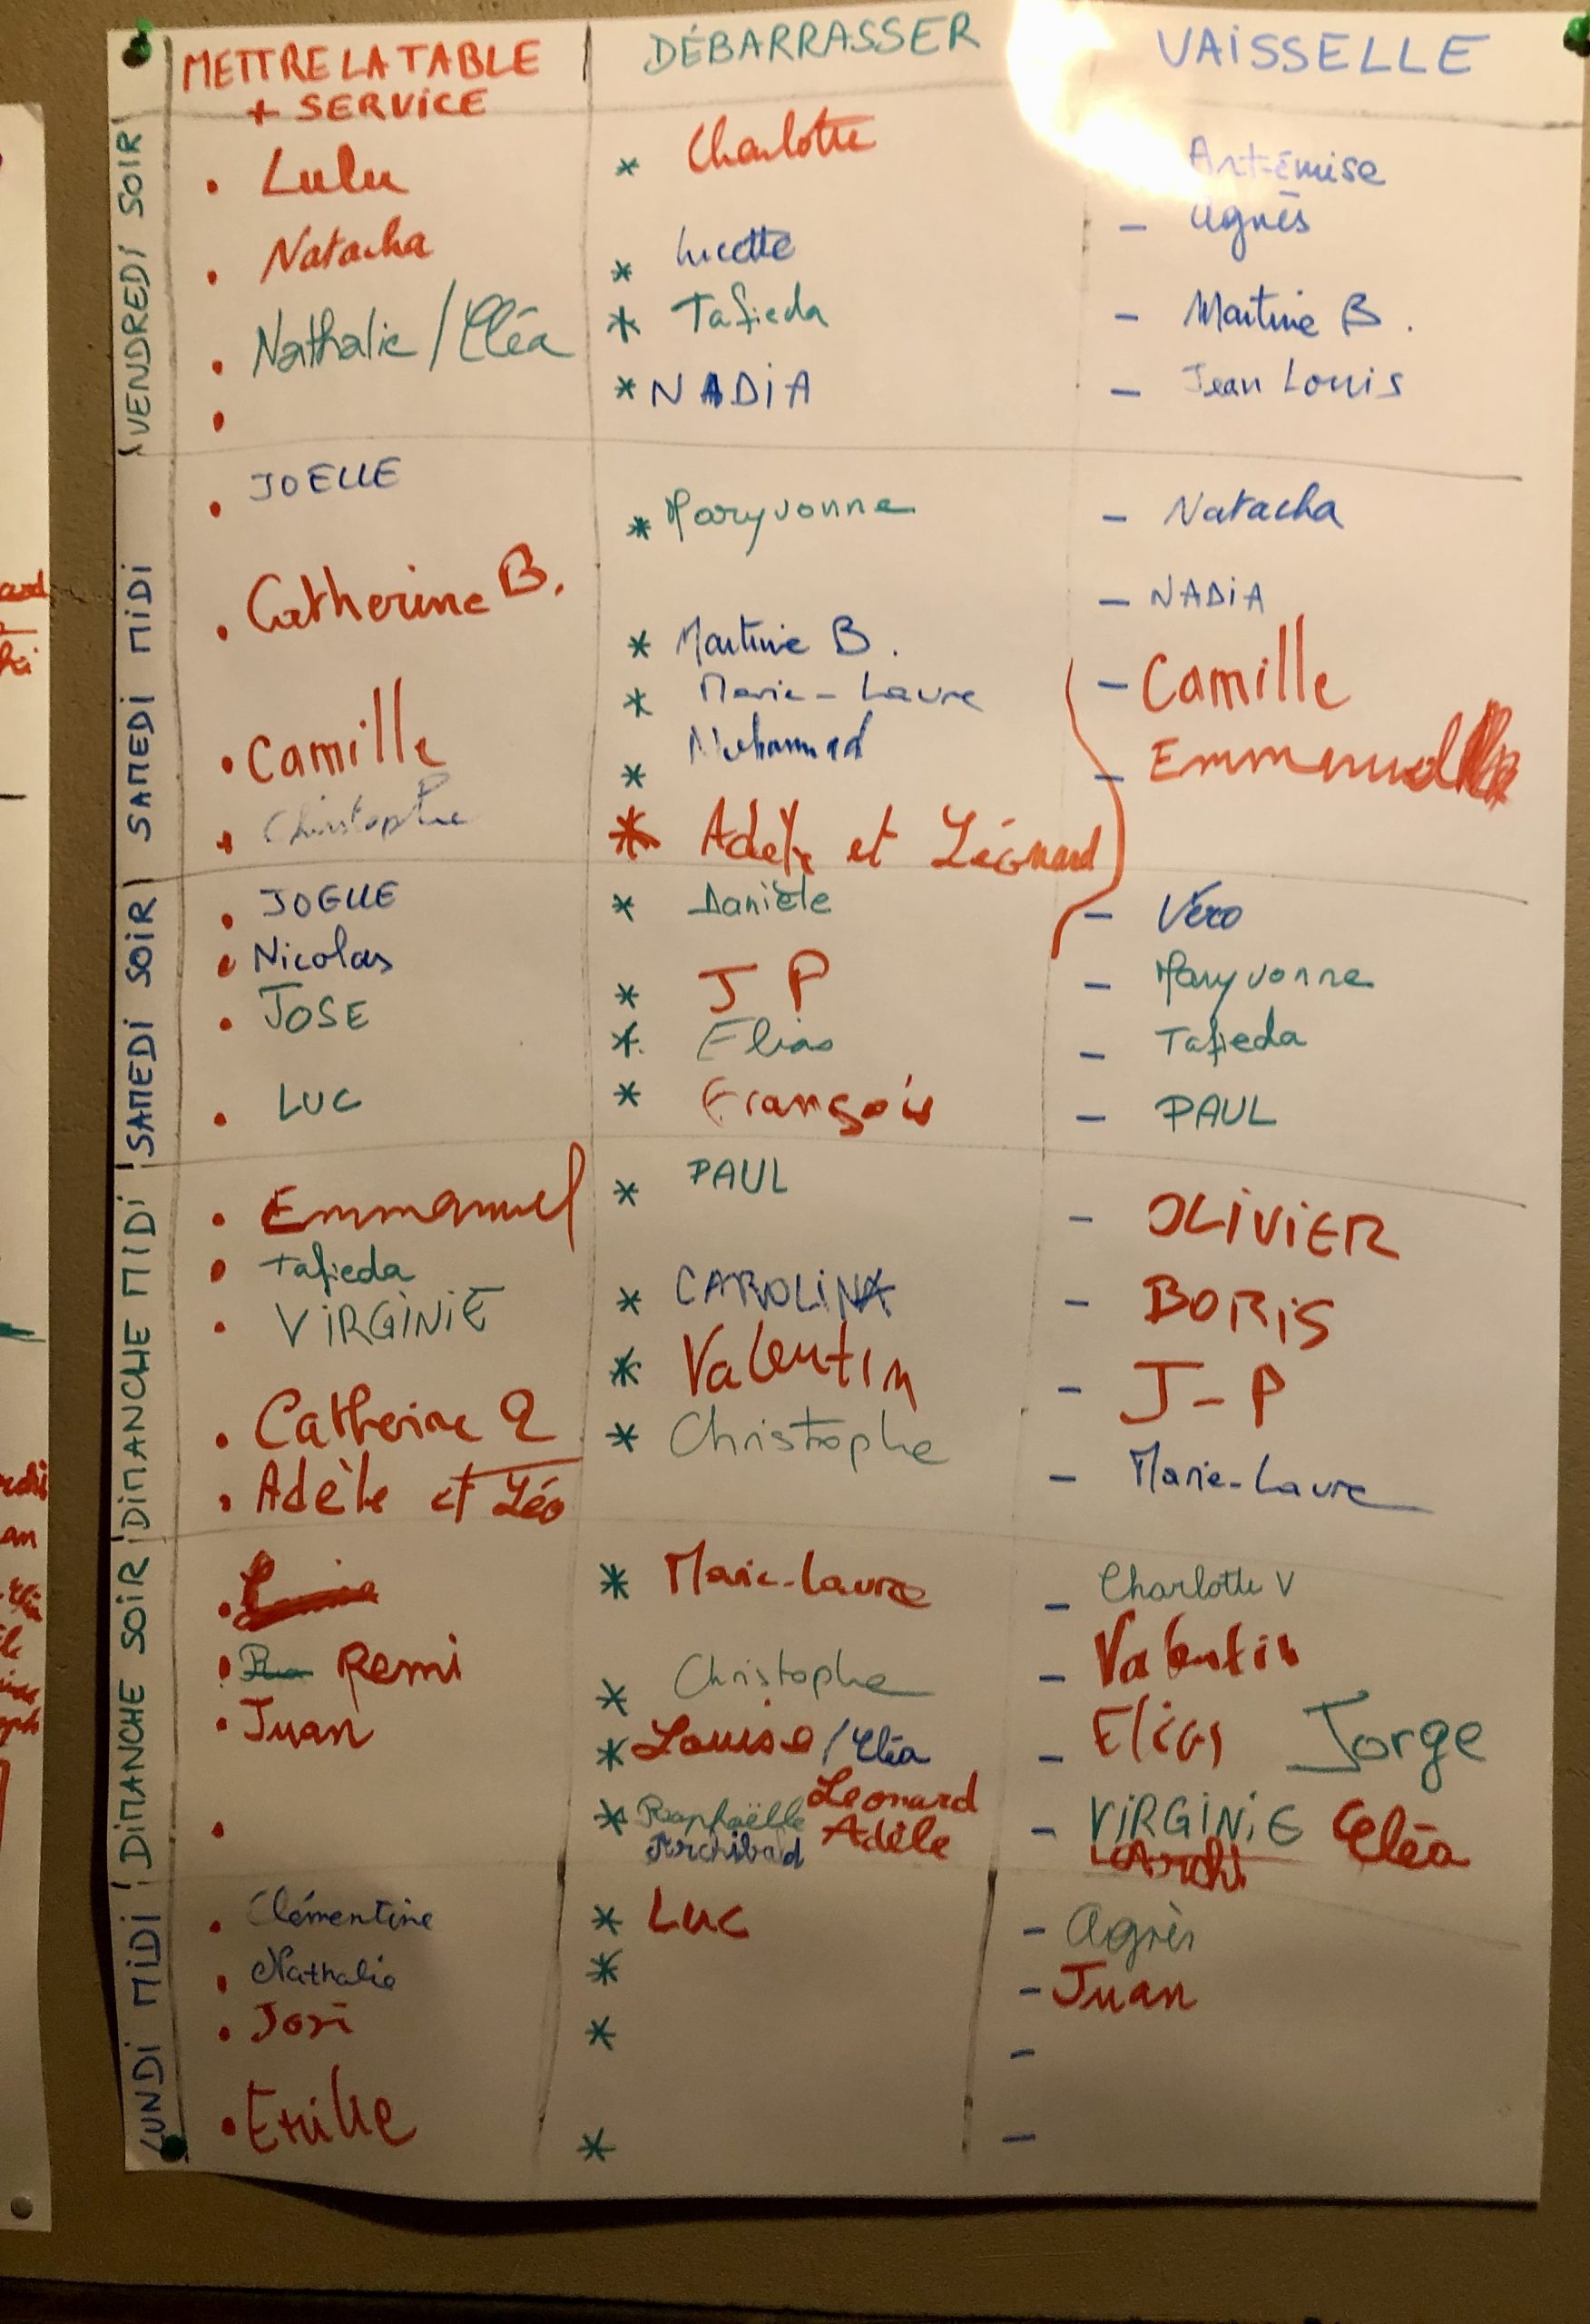 METTRE LA TABLE
+ SERVICE
DÉBARRASSER
VAISSELLE
VENDREDI SOIR
• Lulu
• Natacha
• Nathalie / Cléa
•
* Charlotte
* Lucette
* Tafieda
* NADIA
Artémise
– Agnès
– Martine B.
– Jean Louis
SAMEDI MIDI
• JOELLE
• Catherine B.
• Camille
• Christophe
* Maryvonne
* Martine B.
* Marie-Laure
* Mohammed
* Adèle et Léonard
– Natacha
– NADIA
– Camille
– Emmanuel
SAMEDI SOIR
• JOELLE
• Nicolas
• JOSE
• LUC
* Danièle
* J P
* Elias
* François
– Véro
– Maryvonne
– Tafieda
– PAUL
DIMANCHE MIDI
• Emmanuel
• Tafieda
• VIRGINIE
• Catherine Q
• Adèle et Léo
* PAUL
* CAROLINA
* Valentin
* Christophe
– OLIVIER
– BORIS
– J-P
– Marie-Laure
DIMANCHE SOIR
•
• Remi
• Juan
•
* Marie-Laure
* Christophe
* Louise / Cléa
* Raphaëlle Leonard
Archibald Adèle
– Charlotte V
– Valentin
– Elias Jorge
– VIRGINIE Cléa
Archi
LUNDI MIDI
• Clémentine
• Nathalie
• José
• Emilie
* Luc
*
*
*
– Agnès
– Juan
–
–